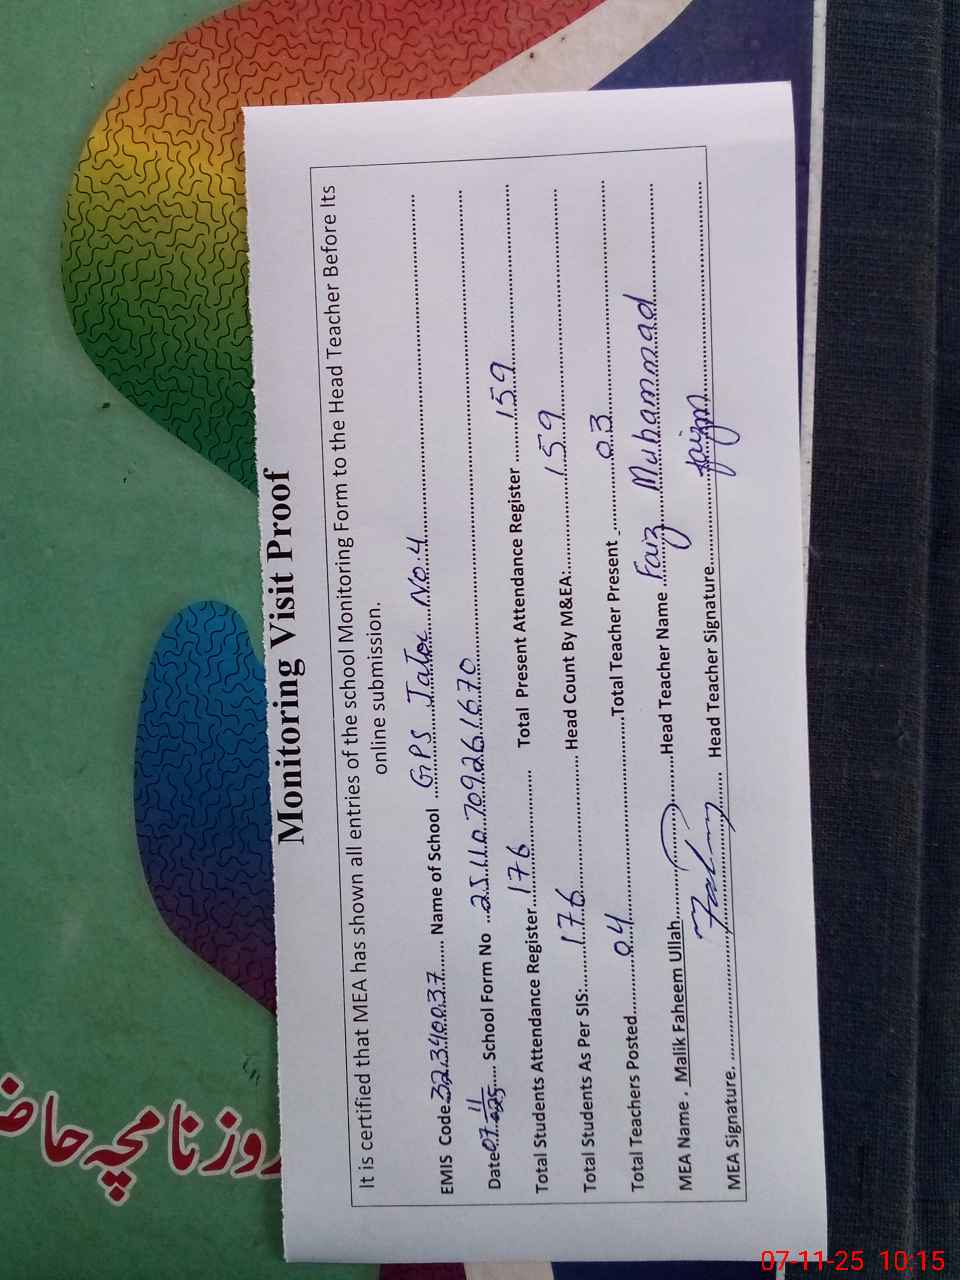 Monitoring Visit Proof
It is certified that MEA has shown all entries of the school Monitoring Form to the Head Teacher Before Its
online submission.
EMIS Code 32340037 Name of School GPS Tatoc No.4
Date 07-11-2025 School Form No 25110709261670
Total Students Attendance Register 176 Total Present Attendance Register 159
Total Students As Per SIS: 176 Head Count By M&EA: 159
Total Teachers Posted 04 Total Teacher Present 03
MEA Name . Malik Faheem Ullah Head Teacher Name Faiz Muhammad
MEA Signature. Head Teacher Signature
روزنامچہ حاض
07-11-25 10:15